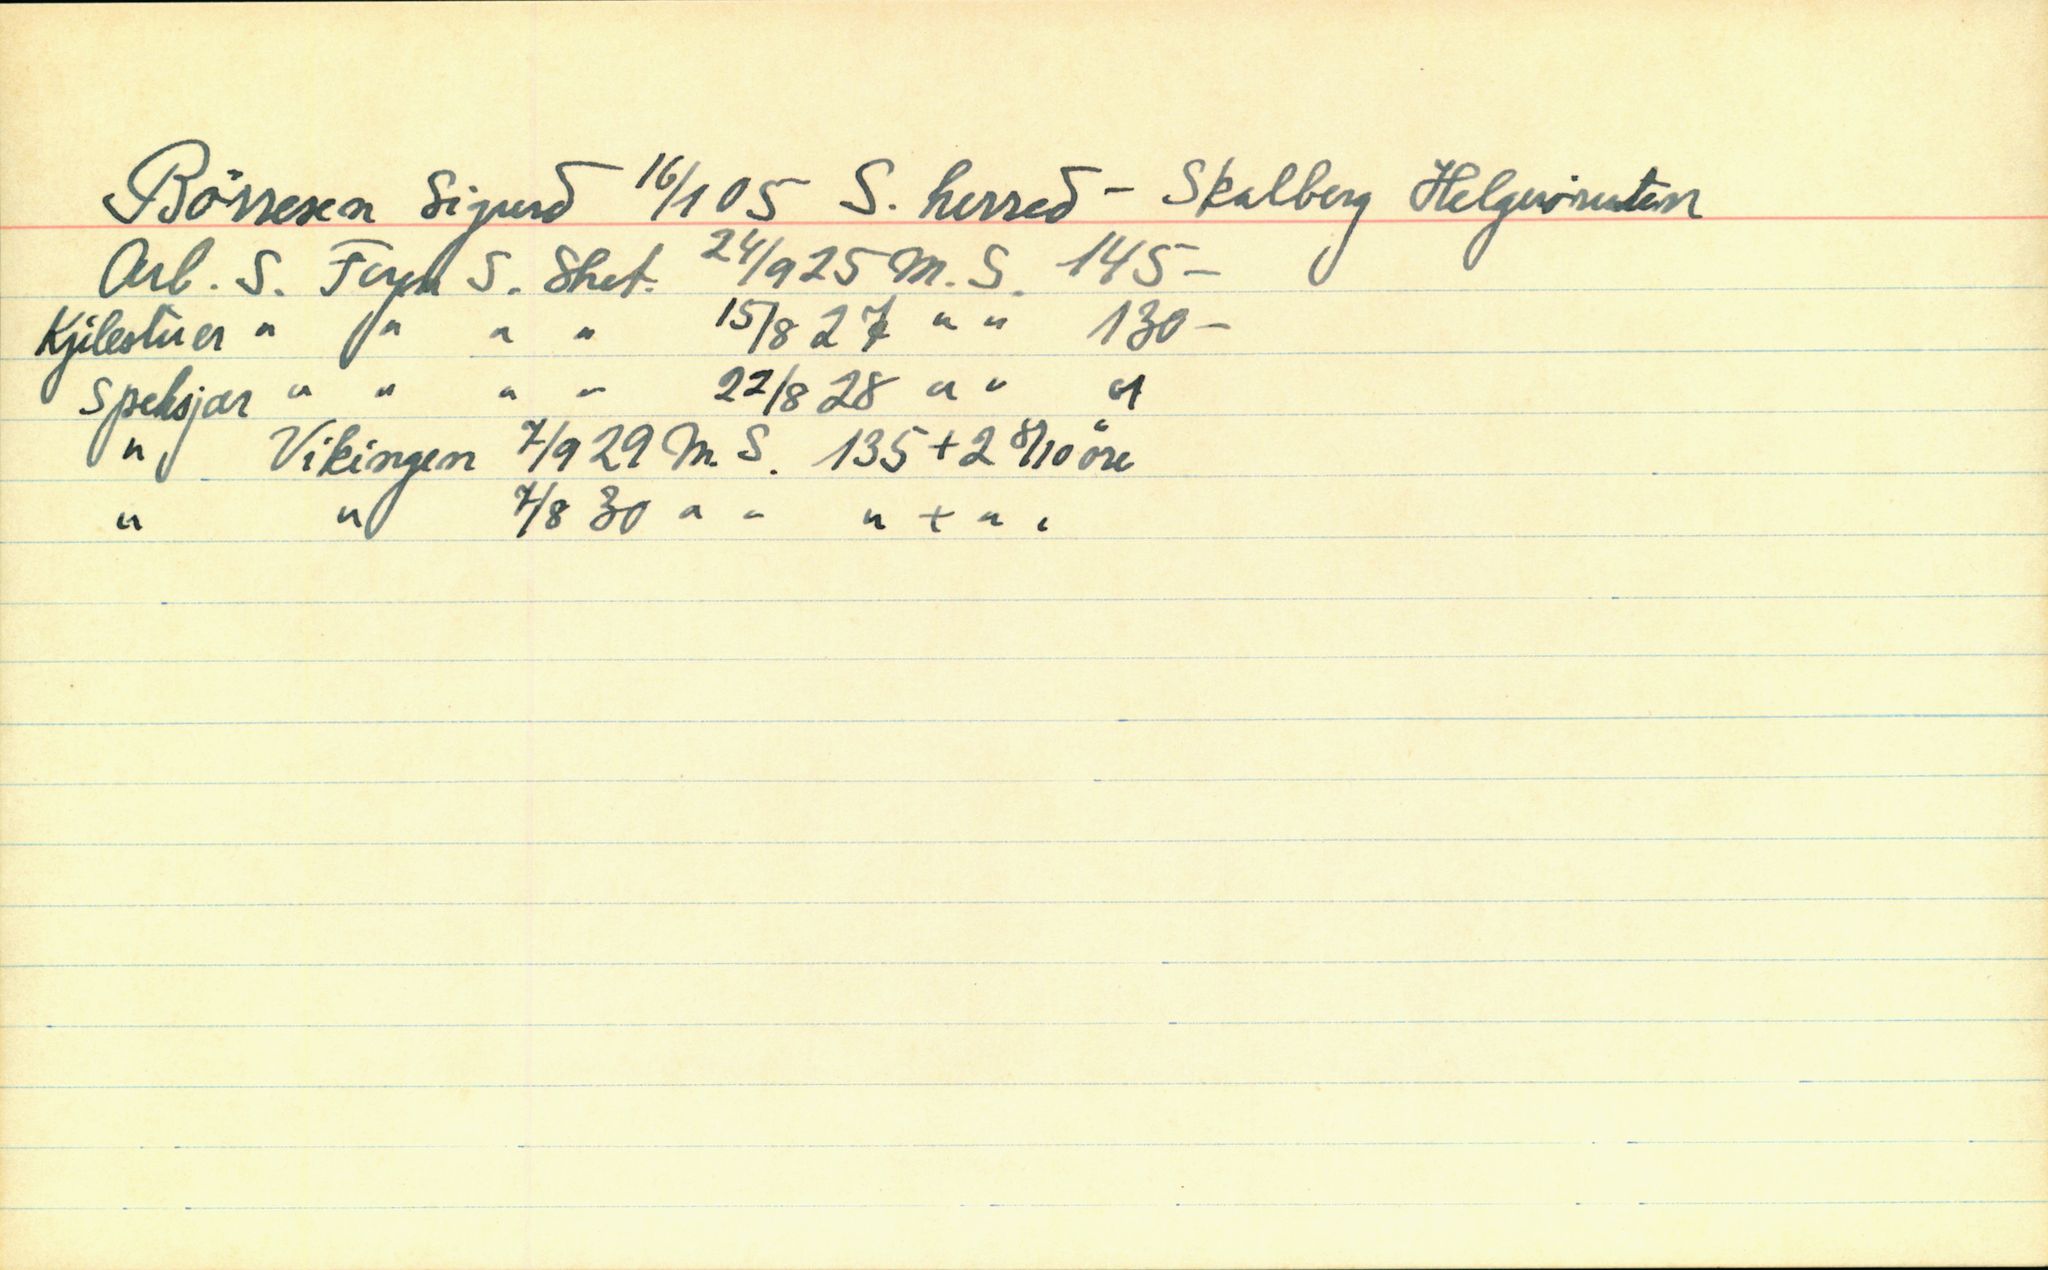 Börresen Sigurd 16/1 05 S. herred - Skalberg Helgeröruten
Arb. S. Foyn S. Shet. 24/9 25 M. S. 145 -
Kjilestuer " " " " 15/8 27 " " 130 -
Speksjær " " " " 22/8 28 " " "
" Vikingen 7/9 29 M. S. 135 + 2 8/10 öre
" " 7/8 30 " " " + " "